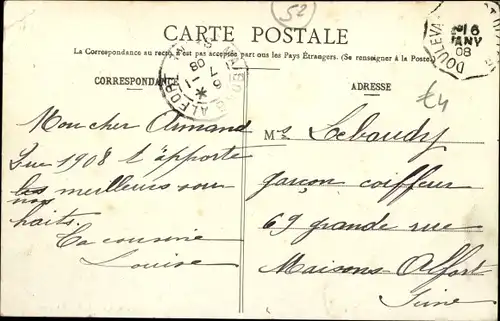 52
CARTE POSTALE
La Correspondance au recto n'est pas acceptée par tous les Pays Étrangers. (Se renseigner à la Poste)
CORRESPONDANCE
ADRESSE
MAISONS ALFORT
7-1
08
DOULEVA
6
JANV
08
£4
Mon cher Armand
Que 1908 t'apporte
les meilleurs sou
nos
haits.
Ta cousine
Louise
Mr Lebaudy
garçon coiffeur
69 grande rue
Maisons-Alfort
Seine